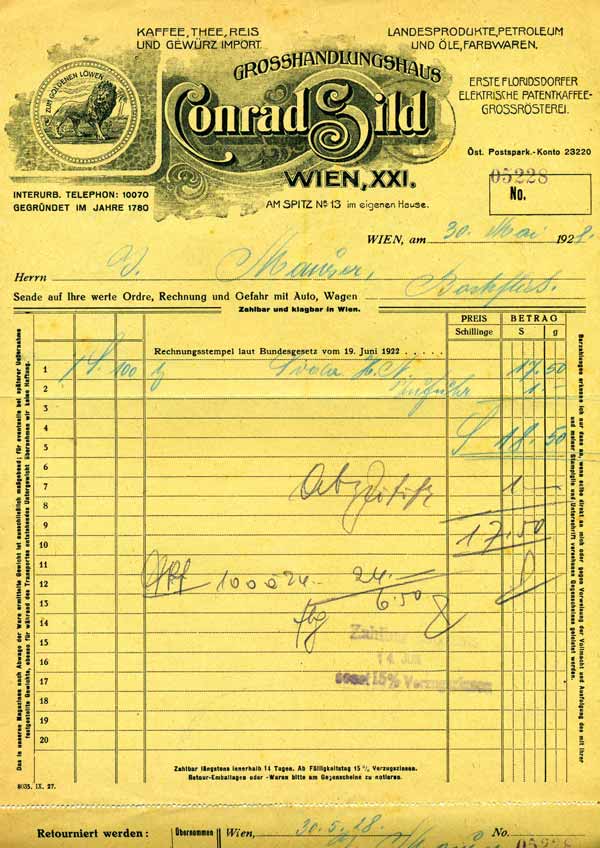 KAFFEE, THEE, REIS
UND GEWÜRZ IMPORT.
LANDESPRODUKTE, PETROLEUM
UND ÖLE, FARBWAREN.
ZUM GOLDENEN LÖWEN
GROSSHANDLUNGSHAUS
Conrad Sild
WIEN, XXI.
AM SPITZ No 13 im eigenen Hause.
ERSTE FLORIDSDORFER
ELEKTRISCHE PATENTKAFFEE-
GROSSRÖSTEREI.
Öst. Postspark.-Konto 23220
INTERURB. TELEPHON: 10070
GEGRÜNDET IM JAHRE 1780
05228
No.
WIEN, am 30. Mai 1928.
Herrn J. Maurer,
Sende auf Ihre werte Ordre, Rechnung und Gefahr mit Auto, Wagen
Zahlbar und klagbar in Wien.
PREIS BETRAG
Schillinge S g
Rechnungsstempel laut Bundesgesetz vom 19. Juni 1922 . . . . . .
1 1 S. 100 17.50
2 1.-
3
4 S 18.50
5
6
7 1 -
8
9 17.50
10
11
12 24.-
13 6.50
14
15 Zahlbar
16 14 JUN
17 sonst 15% Verzugszinsen
18
19
20
Das in unseren Magazinen nach Abwage der Ware ermittelte Gewicht ist ausschließlich maßgebend; für eventuelle bei späterer Übernahme
festgestellte Gewichte, ebenso für während des Transportes entstehendes Untergewicht übernehmen wir keine Haftung.
Barzahlungen erkenne ich nur dann an, wenn selbe direkt an mich oder gegen Vorweisung der Vollmacht und Ausfolgung des mit ihrer
und meiner Stampiglie und Unterschrift versehenen Gegenscheines geleistet werden.
Zahlbar längstens innerhalb 14 Tagen. Ab Fälligkeitstag 15 % Verzugszinsen.
Retour-Emballagen oder -Waren bitte am Gegenscheine zu notieren.
8035. IX. 27.
Retourniert werden: Übernommen Wien, 30.5.28. No. 05228